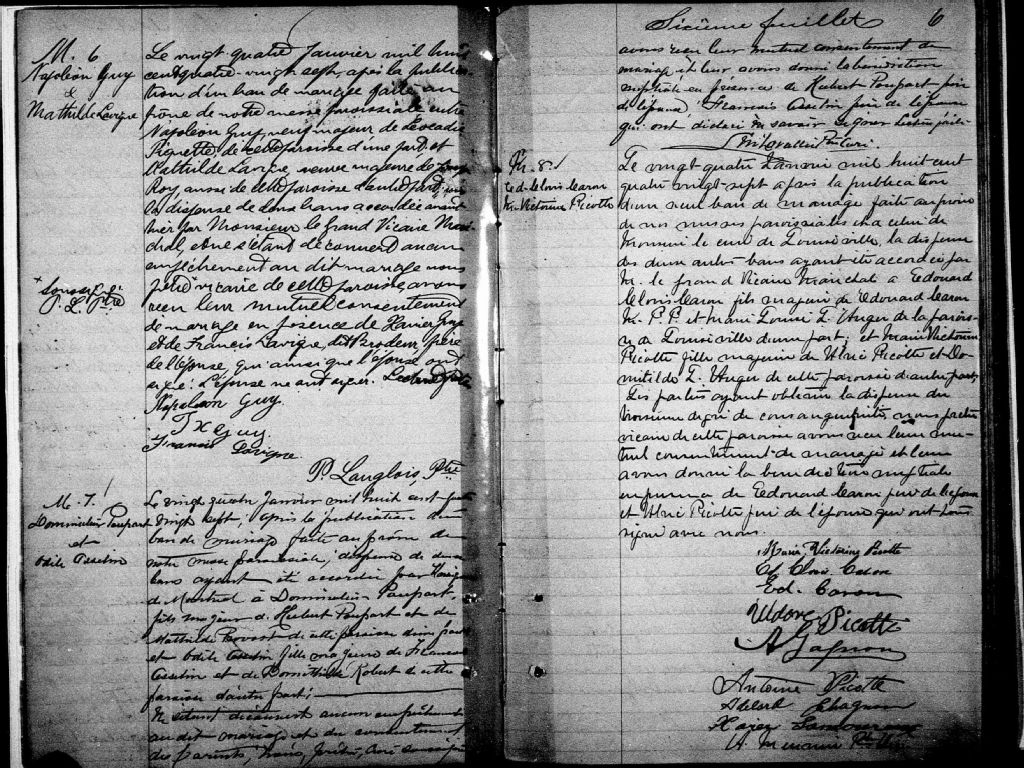 M. 6
Napoléon Guy
&
Mathilde Lavigne
Le vingt quatre Janvier mil huit
cent quatre-vingt sept, après la publica-
tion d'un ban de mariage faite au
prône de notre messe paroissiale entre
Napoléon Guy, veuf majeur de Léocadie
Piquette, de cette paroisse d'une part; et
Mathilde Lavigne, veuve majeure de
Roy, aussi de cette paroisse d'autre part;
la dispense de deux bans accordée
par Monsieur le Grand Vicaire
et ne s'étant découvert aucun
empêchement au dit mariage nous
ptre vicaire de cette paroisse, avons
reçu leur mutuel consentement
de mariage en présence de Xavier Guy
et de Francis Lavigne, dit Brodeur, père
de l'épouse, qui ainsi que l'époux ont
signé. L'épouse ne sait signer. Lecture faite
Napoléon Guy
F X Guy
Francis Lavigne
P. Langlois, Ptre
+
P. L. Ptre
M. 7
Dominique Paupart
et
Odile Asselin
Le vingt quatre Janvier mil huit cent quatre
vingt sept, après la publication d'un
ban de mariage faite au prône de
notre messe paroissiale, dispense de deux
bans ayant été accordée par
de Montréal à Dominique Paupart,
fils majeur de Hubert Paupart et de
Mathilde Provost de cette paroisse d'une part
et Odile Asselin fille majeure de François
Asselin et de Domithilde Robert de cette
paroisse d'autre part;
Ne s'étant découvert aucun empêchement
au dit mariage et du consentement
des parents, Nous, Prêtre, Curé soussigné
Sixième feuillet 6
avons reçu leur mutuel consentement de
mariage et leur avons donné la bénédiction
nuptiale en présence de Hubert Paupart père
de l'époux, François Asselin père de l'épouse
qui ont déclaré ne savoir signer Lecture faite.
M. 8
Ed. Clovis Caron
M. Victorine Picotte
Le vingt quatre Janvier mil huit cent
quatre vingt-sept après la publication
d'un seul ban de mariage faite au prône
de nos messes paroissiales et à celui de
Monsieur le curé de Louiseville, la dispense
des deux autres bans ayant été accordée par
M. le grand Vicaire Maréchal à Edouard
Clovis Caron fils majeur de Edouard Caron
M. P. P. et Marie Louise L. Auger de la parois-
se de Louiseville d'une part; et Marie Victorine
Picotte fille majeure de Ulric Picotte et Do-
mitilde L. Auger de cette paroisse d'autre part;
Les parties ayant obtenu la dispense du
troisième degré de consanguinité, nous prêtre
vicaire de cette paroisse avons reçu leur mu-
tuel consentement de mariage et leur
avons donné la bénédiction nuptiale
en présence de Edouard Caron père de l'époux
et Ulric Picotte père de l'épouse qui ont tous
signé avec nous.
Marie Victorine Picotte
Ed. Clovis Caron
Ed. Caron
Uldoric Picotte
A Gagnon
Antoine Picotte
Albert Chagnon